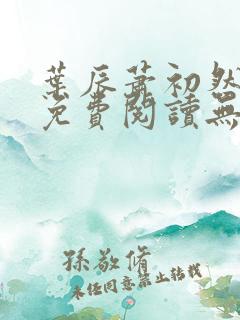 葉辰蕭初然
免費閱讀無
孫敬脩
未經同意禁止轉載